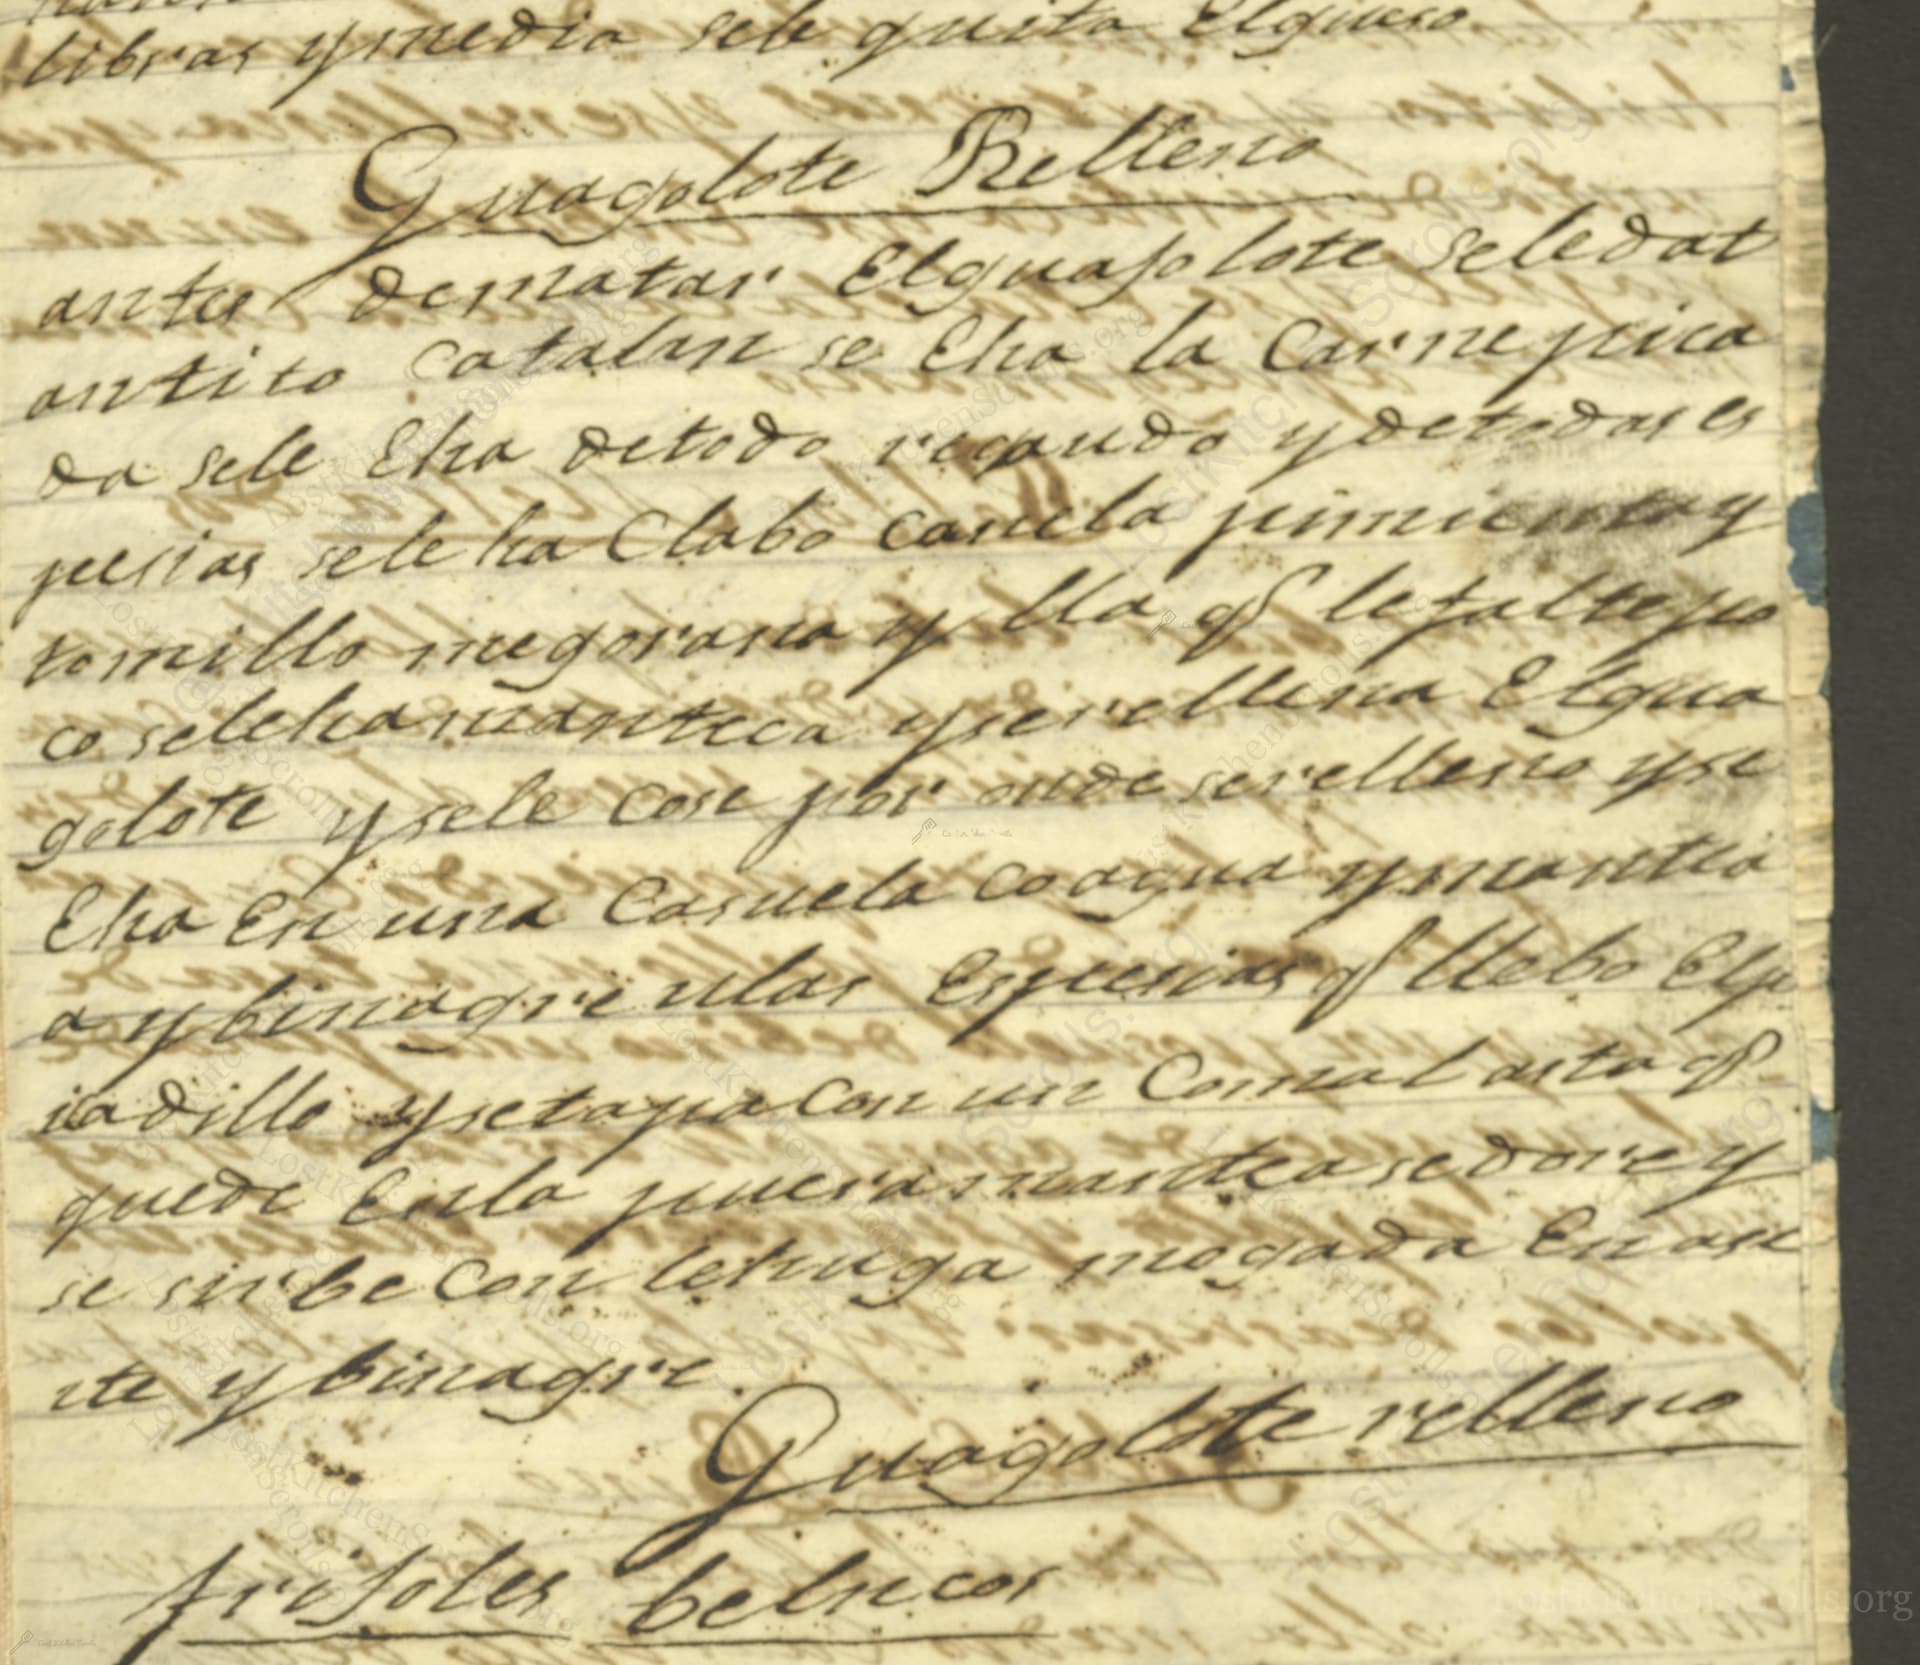 libras y media sele quita Elgueso
Guagolote Relleno
antes dematar Elguajolote seledat
antito catalan se Eha la Carne pica
da sele Eha detodo recaudo y detodas es
pesias sele ha Clabo canela pimienta y
tomillo megorana y lla qe le falte po
co selehamanteca yserellena Elgua
golote y sele cose por onde serelleno yse
Eha En una Casuela co agua ymantec
a y binagre ulas Espesias qe llebo Elp
icadillo ysetapa con un Comal asta qe
quede Enla puera mantea sedore y
se sirbe con lehuga mogada Enase
ite y binagre.
Guagolote relleno
frijoles belucos
LostKitchenScrolls.org